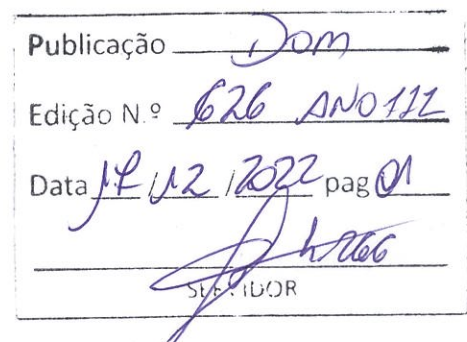 Publicação Dom
Edição N.º 626 ANO III
Data 17/12/2022 pag 01
SERVIDOR